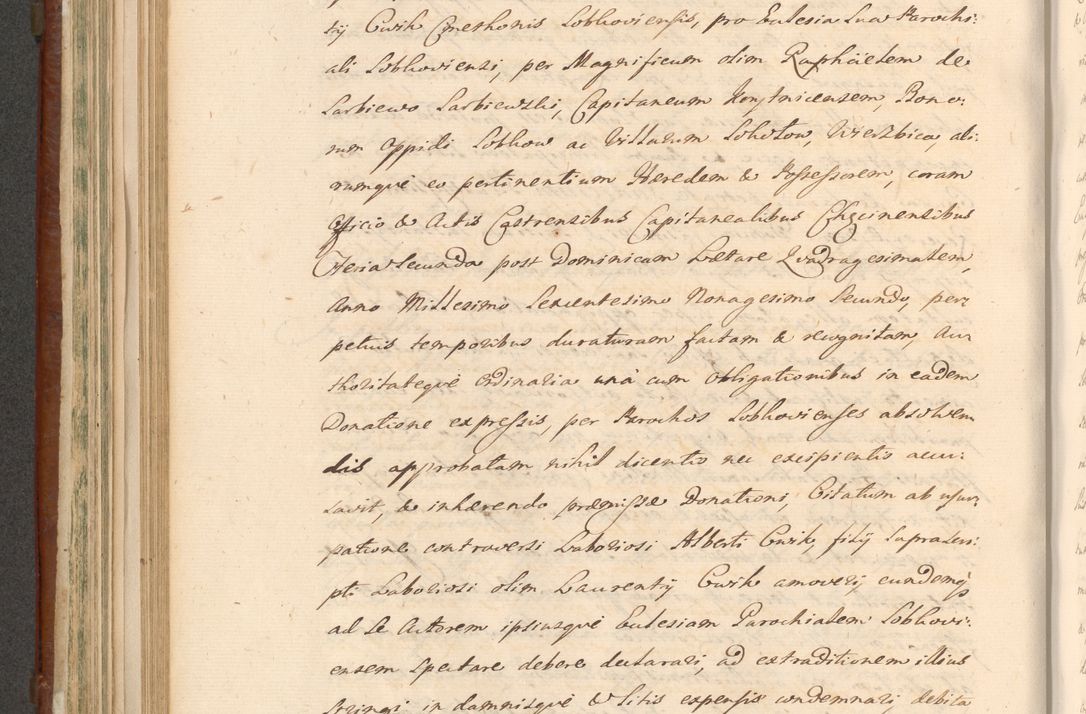 tij Cwik Cmethonis Lobkoviensis, pro Eclesia Sua Parochi:
ali Lobkoviensi, per Magnificum olim Raphäelem de
Sarbiewo Sarbiewski, Capitaneum Konstnicensem, Bono:
rum Oppidi Lobkow ac Villarum Lokotow, Wierzbica, ali:
rumqvè eo pertinentium Heredem & Possessorem, coram
Officio & Actis Castrensibus Capitanealibus Chęcinensibus
Feria Secunda post Dominicam Lætare Qvadragesimalem,
Anno Millesimo Sexcentesimo Nonagesimo Secundo, per:
petuis temporibus duraturam factam & recognitam, Au:
thoritateqvè Ordinaria unà cum Obligationibus in eadem
Donatione expressis, per Parochos Lobkovienses absolven
dis approbatam nihil dicentis nec excipientis accu:
savit, & inhærendo præmissæ Donationi, Citatum ab usur:
patione controversi Laboriosi Alberti Cwik, filij Suprascri:
pti Laboriosi olim Laurentij Cwik amoveri, eundemq;
ad Se Actorem ipsiusqvè Eclesiam Parochialem Lobkovi:
ensem Spectare debere declarari, ad extraditionem illius
Stringi in damnisqvè & Litis expensis condemnari, debita